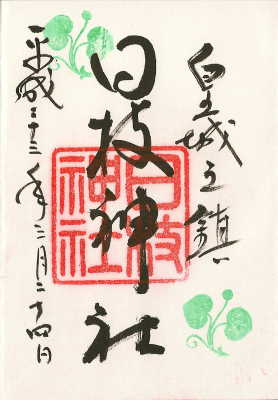 皇城之鎮
日枝神社
平成二十三年二月二十四日
日枝
神社